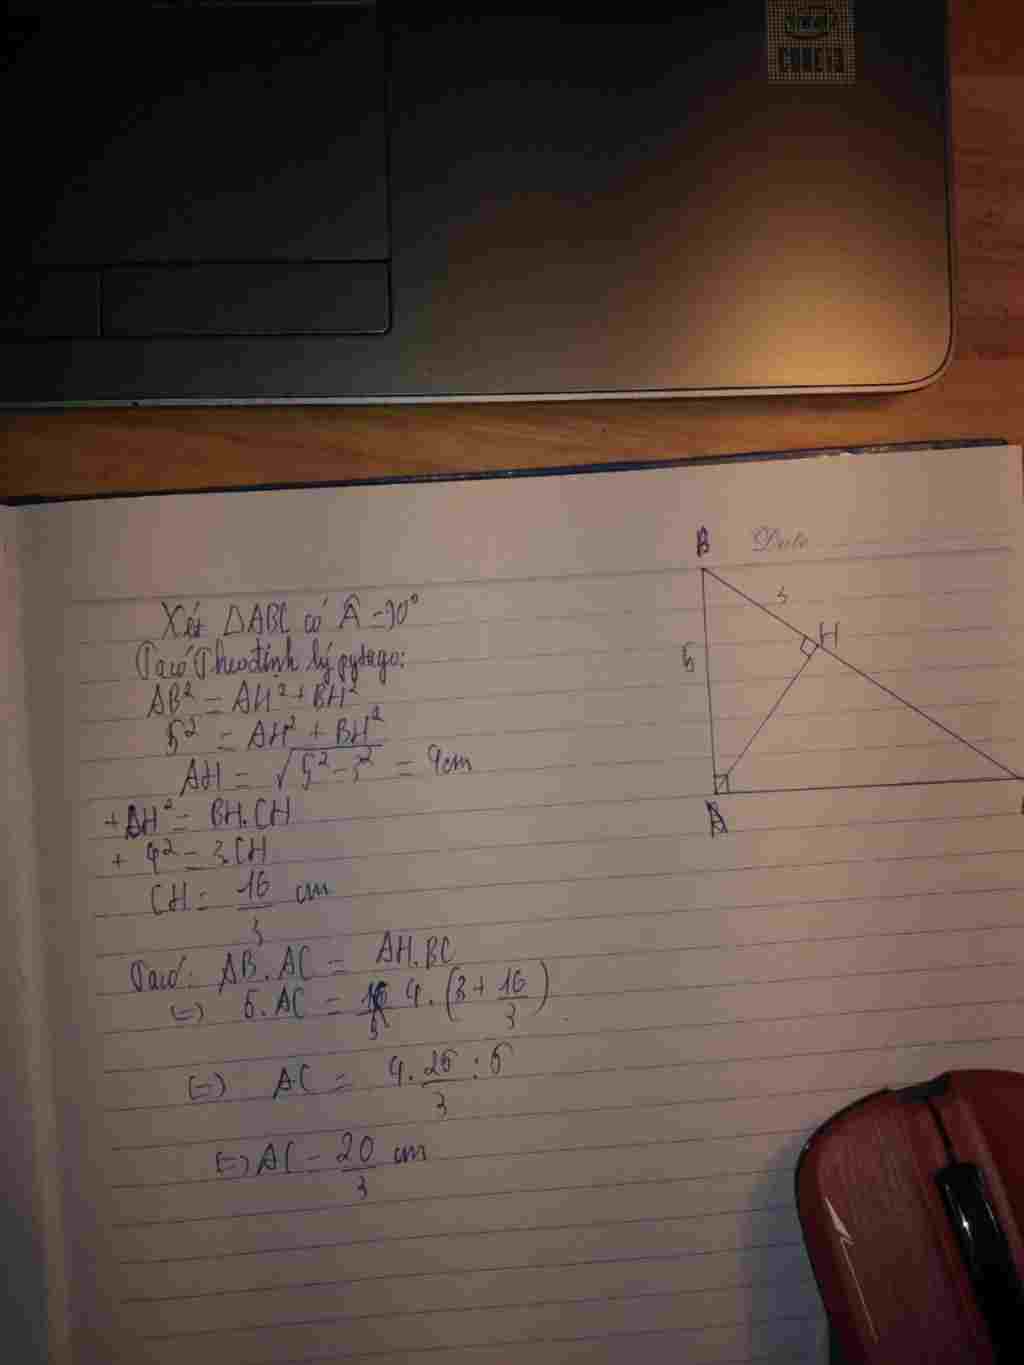 B
Date
3
H
5
A
Xét ΔABC có Â = 90°
Ta có Theo định lý pytago:
AB² = AH² + BH²
5² = AH² + BH²
AH = √5² - 3² = 4cm
+ AH² = BH.CH
+ 4² = 3.CH
CH = 16/3 cm
Ta có: AB.AC = AH.BC
=) 5.AC = 4.(3 + 16/3)
(=) AC = 4.25/3 : 5
(=) AC = 20/3 cm